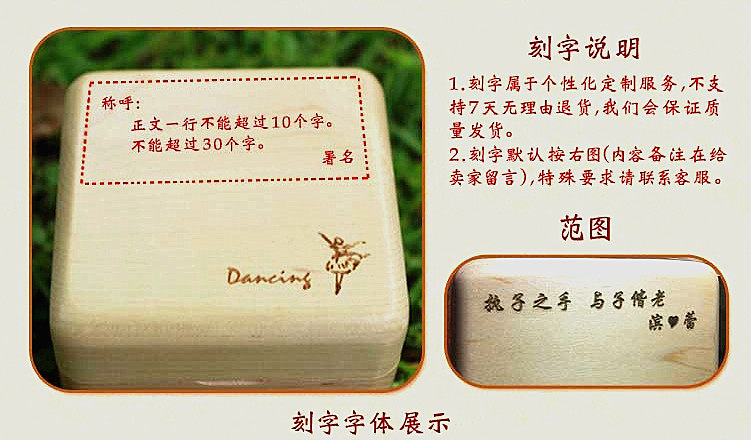 称呼:
正文一行不能超过10个字。
不能超过30个字。
署名
Dancing
刻字说明
1.刻字属于个性化定制服务,不支
持7天无理由退货,我们会保证质
量发货。
2.刻字默认按右图(内容备注在给
卖家留言),特殊要求请联系客服。
范图
执子之手 与子偕老
滨♥蕾
刻字字体展示